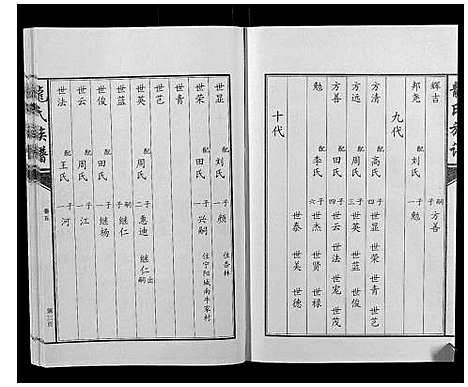 龍氏族譜
辉吉 嗣子 方善
邦尧 配 刘氏 子一 勉
九代
方清 配 高氏 子二 世显 世荣 世青 世芑
方远 配 周氏 子四 世英 世蓝 世俊
方善 配 田氏 子四 世云 世法 世宠 世茂
勉 配 李氏 子六 世杰 世贤 世禄
世泰 世美 世德
十代
世显 配 刘氏 子一 颜 住杏林
世荣 配 田氏 子一 兴嗣 住宁阳城南牛家村
世青
世芑
世英 配 周氏 子二 惠迪 继仁出嗣
世蓝 嗣子 继仁
世俊 配 田氏 子一 继杨
世云 配 周氏 子一 江
世法 配 王氏 子一 河
龍氏族譜
卷五